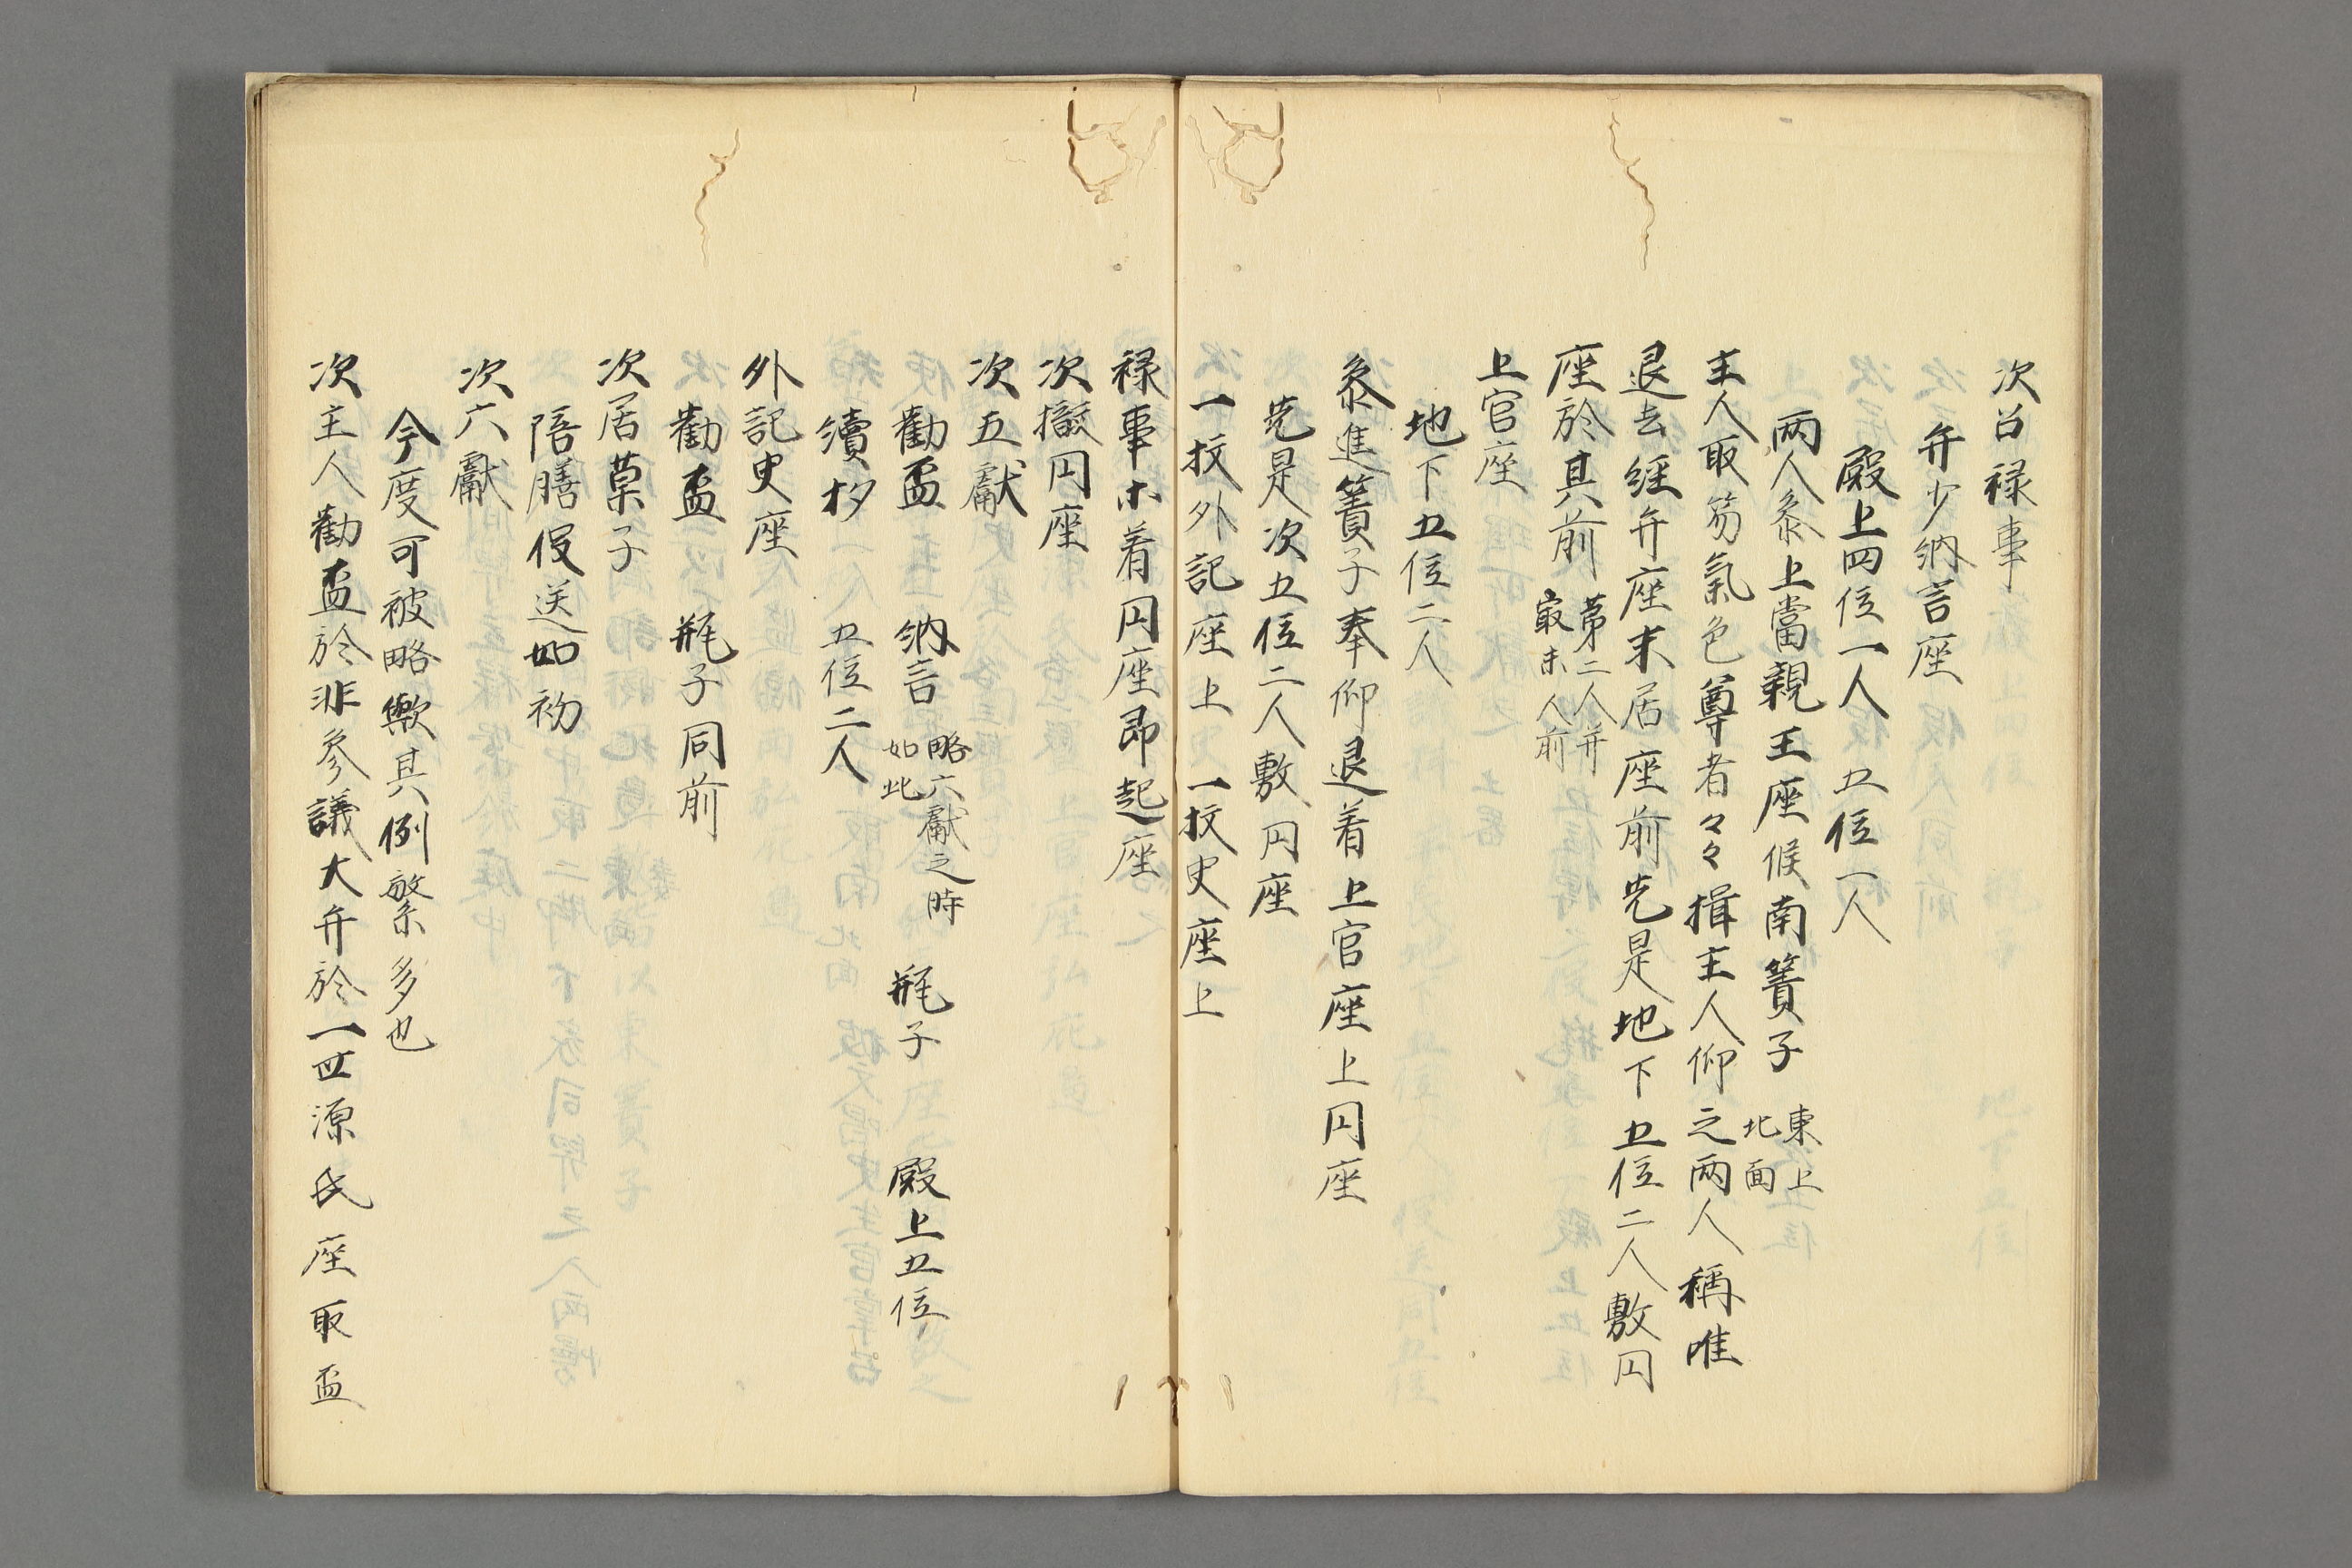 次召禄事
弁少納言座
殿上四位一人 五位一人
両人参上當親王座候南簀子 東上北面
主人取笏氣色尊者々々揖主人仰之両人稱唯
退去経弁座末居座前先是地下五位二人敷円
座於其前 第二人弁最末人前
上官座
地下五位二人
参進簀子奉仰退着上官座上円座
先是次五位二人敷円座
一枚外記座上 一枚史座上
禄事ホ着円座即起座
次撤円座
次五献
勸盃 納言 略六獻之時如此 瓶子 殿上五位
續杓 五位二人
外記史座
勸盃 瓶子同前
次居菓子
陪膳役送如初
次六獻
今度可被略歟其例繁多也
次主人勸盃於非参議大弁於一世源氏座取盃